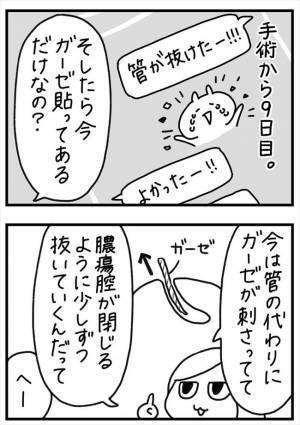 手術から9日目。
管が抜けたー!!!
よかったー!!
そしたら今
ガーゼ貼ってある
だけなの?
今は管の代わりに
ガーゼが刺さってて
ガーゼ
膿瘍腔が閉じる
ように少しずつ
抜いていくんだって
へー